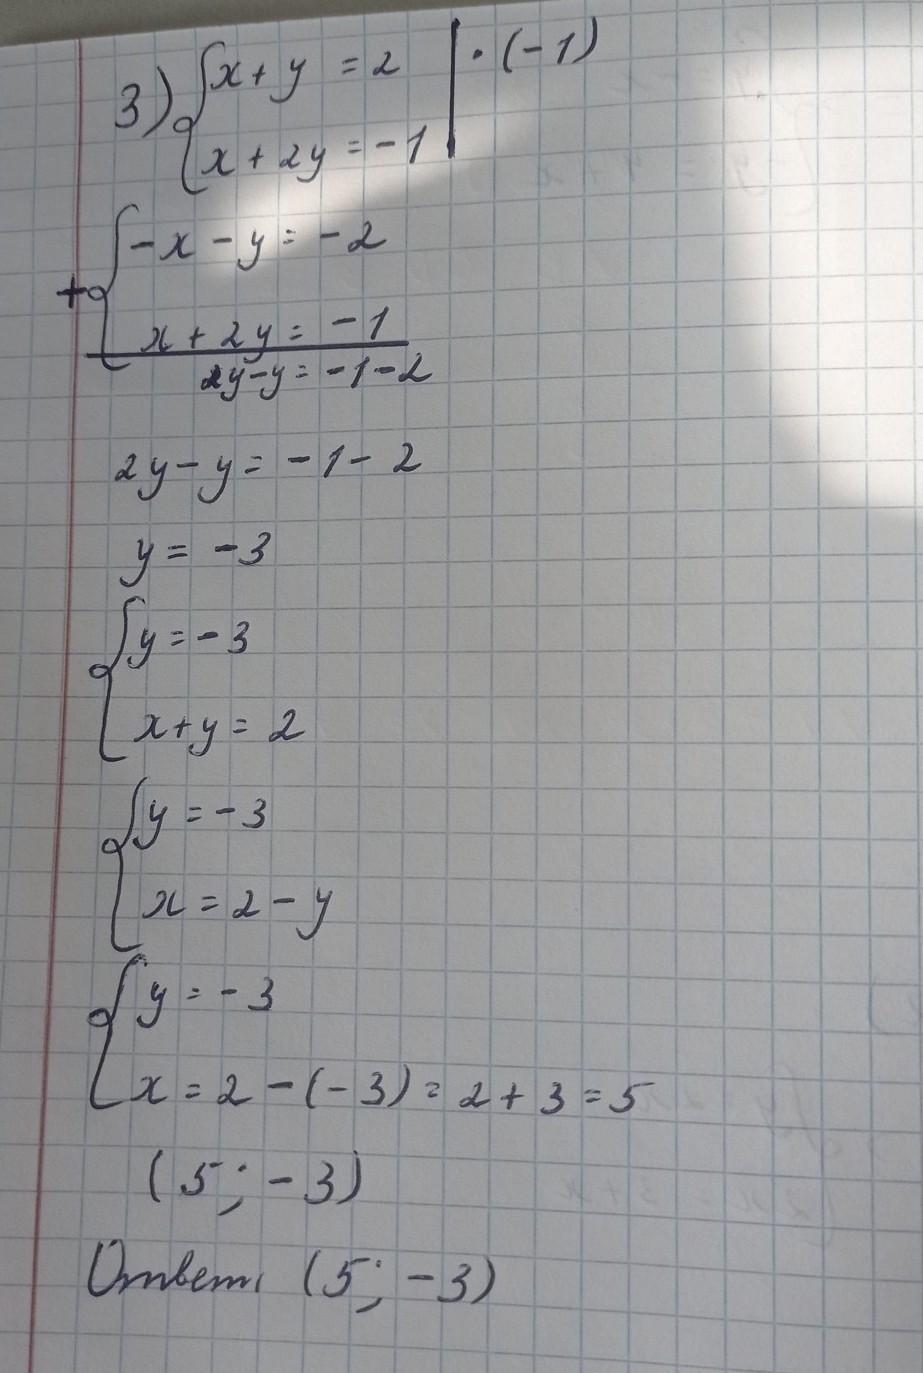 3) { x + y = 2 | · (-1)
x + 2y = -1
+ { -x - y = -2
x + 2y = -1
2y - y = -1 - 2
2y - y = -1 - 2
y = -3
{ y = -3
x + y = 2
{ y = -3
x = 2 - y
{ y = -3
x = 2 - (-3) = 2 + 3 = 5
(5; -3)
Ответ: (5; -3)